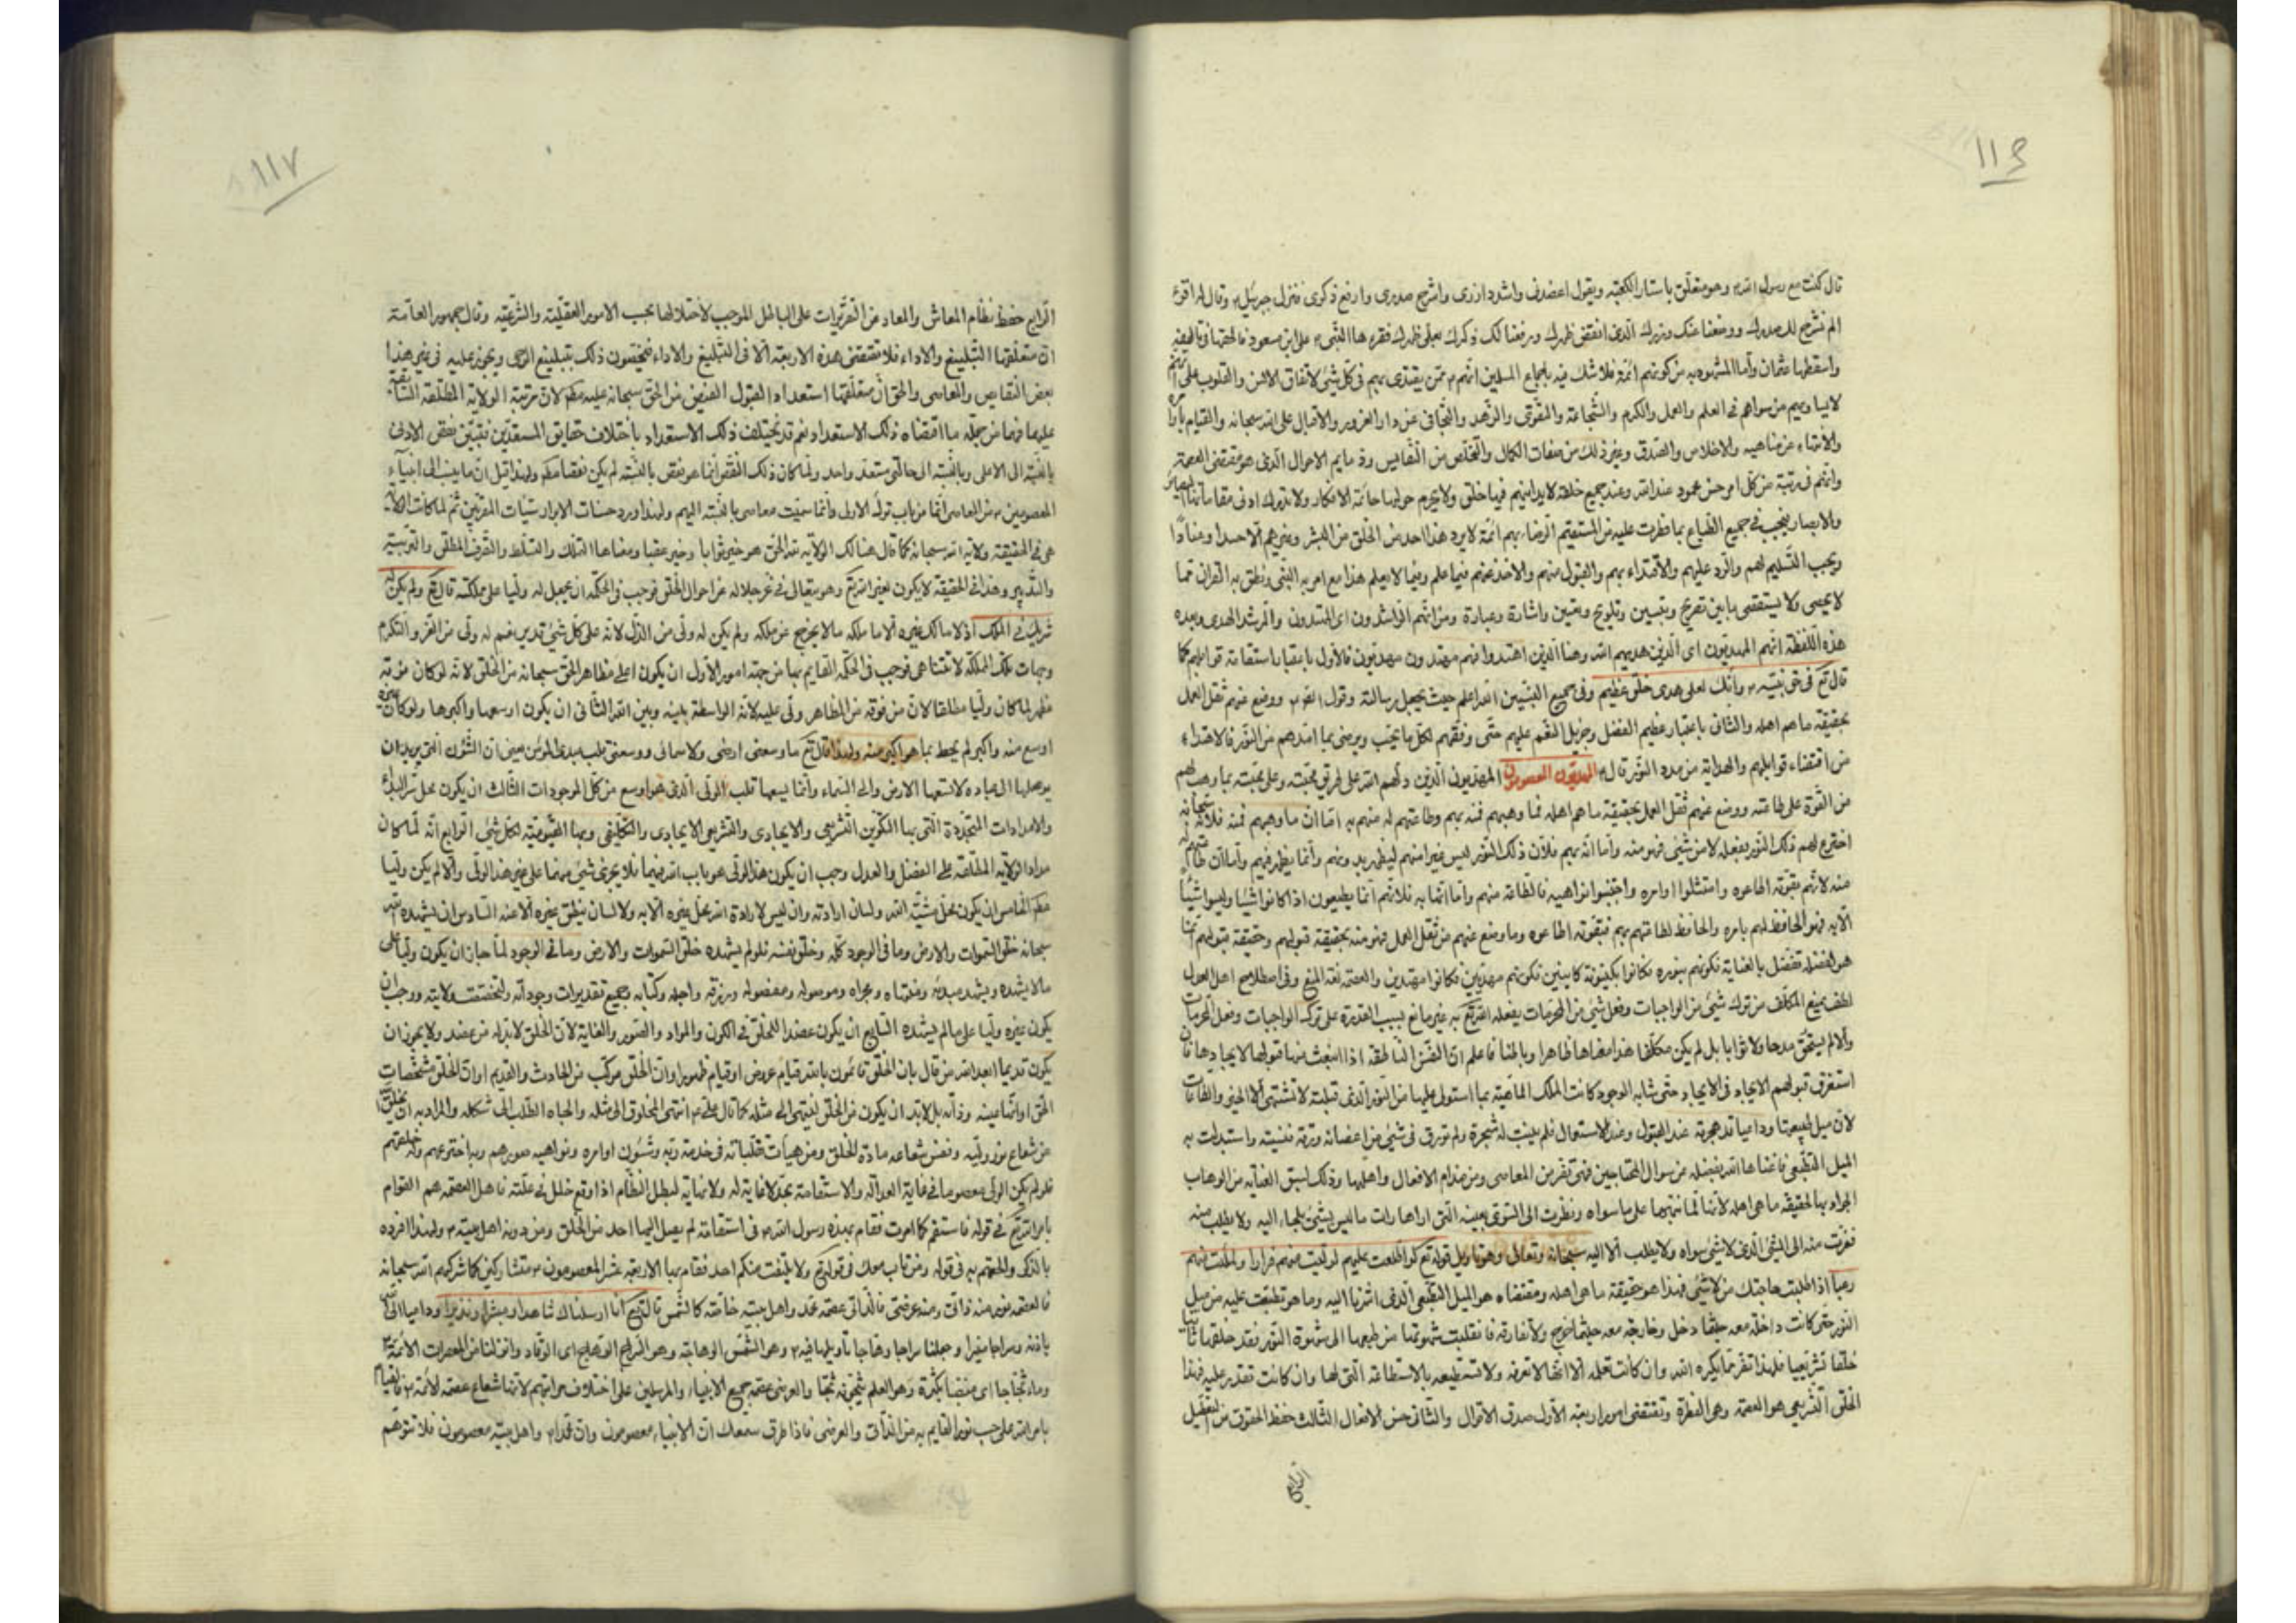 ١١٦
قال كنت مع رسول الله وهو متعلق باستار الكعبة ويقول اعضدنى واشدد ازرى واشرح صدرى وارفع ذكرى فنزل جبرئيل وقال له اقرء
الم نشرح لك صدرك ووضعنا عنك وزرك الذى انقض ظهرك ورفعنا لك ذكرك بعلى ظهرك فقرءها النبى على ابن مسعود فالحقها فى تاليفه
واسقطها عثمان وأما المشهود به من كونهم ائمة فلا شك فيه باجماع المسلمين انهم ممن يقتدى بهم فى كل شئ لاتفاق الالسن والقلوب على انهم
لايساويهم من سواهم فى العلم والعمل والكرم والشجاعة والتقوى والزهد والتجافى عن دار الغرور والاقبال على الله سبحانه والقيام
والانتهاء عن مناهيه والاخلاص والصدق وغير ذلك من صفات الكمال والتخلص من النقايص وذمايم الاحوال الذى هو مقتضى العصمة
وانهم فى رتبة من كل امر حسن محمود عند الله وعند جميع خلقه لايدانيهم فيها خلق ولا يحوم حولها حائمة الافكار ولا يدرك ادنى مقاماتها
والابصار فيجب فى جميع الطباع بما فطرت عليه من المستقيم الرضاء بهم ائمة لا يرد هذا احد من الخلق من البشر وغيرهم الا حسدا وعنادا
ويجب التسليم لهم والرد عليهم والاقتداء بهم والقبول منهم والاخذ عنهم فيما علم وفيما لا يعلم هذا مع امر به النبى ونطق به القران مما
لا يحصى ولا يستقصى ما بين تصريح وتبيين وتلويح وتعيين واشارة وعبارة ومن انهم الراشدون اى المهتدون والرشد الهدى وبعده
هذه اللفظة انهم المهديون اى الذين هديهم الله وهنا الذين اهتدوا فهم مهتدون مهديون فالاول باعتبار استقامة قوابلهم كما
قال تع فى حق نبيه وانك لعلى خلق عظيم وفى جميع النبيين الله اعلم حيث يجعل رسالته وقول ووضع عنهم ثقل العمل
بحقيقة ما هم اهله والثانى باعتبار عظيم الفضل وجزيل النعم عليهم حتى وفقهم لكل ما يحب ويرضى بما امدهم من النور فالاهتداء
من اقتضاء قوابلهم والهداية من مدد النور قال المهديون المعصومون المهذبون الذين دلهم الله على طريق محبته وعلى محبته بما وهب لهم
من القوة على طاعته ووضع عنهم ثقل العمل بحقيقة ما هم اهله فما وهبهم فمنه بهم وطاعتهم له منهم به اما ان ما وهبهم فمنه فلانه سبحانه
اخترع لهم ذلك النور بفعله لا من شئ فهو منه واما انه بهم فلان ذلك النور ليس غيرا منهم ليظهر بدونهم وأنما يظهر فيهم وأما ان طاعتهم له
منه لانهم بقوته اطاعوه وامتثلوا اوامره واجتنبوا نواهيه فالطاعة منهم واما انها به فلانهم انما يطيعون اذا كانوا شيئا وليسوا شيئا
الا به فهو الحافظ لهم بامره والحافظ لطاعتهم بهم فبقوته اطاعوه وما وضع عنهم من ثقل العمل فهو منه بحقيقة قبولهم وحقيقة قبولهم
هو الفضله تفضل بالعناية فكونهم بنوره فكانوا بكينونة كاينين فكونهم مهديين فكانوا مهتدين والعصمة لغة المنع وفى اصطلاح اهل العدل
لطف يمنع المكلف من ترك شئ من الواجبات وفعل شئ من المحرمات يفعله الله تع به غير مانع بسبب القدرة على ترك الواجبات وفعل المحرمات
والا لم يستحق مدحا ولا ثوابا بل لم يكن مكلفا هذا معناها ظاهرا وباطنا فاعلم ان النفس الناطقة اذا انبعث منها قبولها لايجادها فان
استغرق قبولهم الايجاد فى الايجاد حتى شابه الوجود كانت الملك الماهية بما استولى عليها من النور الذى قبلته لا تشتهى الا الخير والطاعات
لان ميل طبيعتها وداعياته مهجورة عند القبول وعند الاستعمال فلم ينبت له شجرة ولم تورق فى شئ من اغصانه ورقة نفسيته واستبدلت به
الميل التطبعى فاغناها الله بفضله من سوال المحتاجين فهى تنفر من المعاصى ومن مذام الافعال واهلها وذلك لسبق العناية من الوهاب
الجواد بها لحقيقة ما هى اهله لانها لما نبهها على ما سواه ونظرت الى السوى بعينه التى اراها رات ما ليس بشئ يلجاء اليه ولا يطلب منه
ففرت منه الى الشئ الذى لا شئ سواه ولا يطلب الا اليه سبحانه وتعالى وهو تاويل قوله تع لو اطلعت عليهم لوليت منهم فرارا ولملئت منهم
رعبا اذا طلبت حاجتك من لا شئ فهذا هو حقيقة ما هى اهله ومقتضاه هو الميل التطبعى الذى اشرنا اليه وما هو تطبعت عليه من ميل
النور حتى كانت داخلة معه حيثما دخل وخارجة معه حيثما خرج ولا تفارقه فانقلبت شهوتها من طبعها الى شهوة النور فقد خلقها ثانيا
خلقا تشريعيا فلهذا تنفر مما يكره الله وان كانت تعلمه الا انها لا تعرفه ولا تستطيعه بالاستطاعة التى لها وان كانت تقدر عليه فهذا
الخلق التشريعى هو العصمة وهى الفطرة وتقتضى امورا اربعة الاول صدق الاقوال والثانى حسن الافعال الثالث حفظ الحقوق من التعطيل
الرابع
١١٧
الرابع حفظ نظام المعاش والمعاد عن التغييرات على الباطل الموجب لاختلالها بحسب الامور العقلية والشرعية وقال جمهور العامة
ان متعلقها التبليغ والاداء فلا تقتضى هذه الاربعة الا فى التبليغ والاداء فيخصون ذلك بتبليغ الوحى ويجوز عليه فى غير هذا
بعض النقايص والمعاصى والحق ان متعلقها استعداد القبول الفيض من الحق سبحانه عليه مطلقا لان مرتبة الولاية المطلقة السابقة
عليها فهما من جملة ما اقتضاه ذلك الاستعداد نعم قد يختلف ذلك الاستعداد باختلاف حقايق المستعدين فيتبين نقص الادنى
بالنسبة الى الاعلى وبالنسبة الى حالتى مستعد واحد ولما كان ذلك النقص انما هو نقص بالنسبة لم يكن نقصا مطلقا ولهذا قيل ان ما ينسب الى انبياء
المعصومين من المعاصى انما من باب ترك الاولى وانما سميت معاصى بالنسبة اليهم ولهذا ورد حسنات الابرار سيئات المقربين ثم لما كانت الولاية
هى فى الحقيقة ولاية الله سبحانه كما قال هنالك الولاية لله الحق هو خير ثوابا وخير عقبا ومعناها التملك والتسلط والتصرف المطلق والتربية
والتدبير وهذا فى الحقيقة لا يكون لغير الله تع وهو يتعالى فى عز جلاله عن احوال الخلق فوجب فى الحكمة ان يجعل له وليا على مملكته قال تع ولم يكن له
شريك فى الملك اذ لا مالك غيره الا ما ملكه مالا يخرج عن ملكه ولم يكن له ولى من الذل لانه على كل شئ قدير نعم له ولى من العز والتكرم
وجهات تلك المملكة لا تتناهى فوجب فى الحكمة القايم بها من جهة امور الاول ان يكون اعلى مظاهر الحق سبحانه من الخلق لانه لو كان فوقه
مظهر لما كان وليا مطلقا لان من فوقه من المظاهر ولى عليه لانه الواسطة بينه وبين الله الثانى ان يكون اوسعها واكبرها ولو كان غيره
اوسع منه واكبر لم يحط بما هو اكبر منه ولهذا قال تع ما وسعنى ارضى ولا سمائى ووسعنى قلب عبدى المؤمن يعنى ان الشئون التى يريد ان
يوصلها الى عباده لا تسعها الارض والى السماء وأنما يسعها قلب الولى الذى هو اوسع من كل الموجودات الثالث ان يكون محل
والامدادات المتجددة التى بها التكوين التشريعى والايجادى والتشريعى الايجادى والتكليفى وبها القيومية لكل شئ الرابع انه لما كان
مدار الولاية المطلقة على الفضل والعدل وجب ان يكون هذا الولى هو باب الله فيهما فلا يجرى شئ منهما على غير هذا الولى والا لم يكن وليا
مطلقا الخامس ان يكون محل مشية الله ولسان ارادته وان ليس لارادة الله محل غيره الا به ولا لسان ينطق بغيره الا عنه السادس ان يشهده الله
سبحانه خلق السموات والارض وما فى الوجود كله وخلق نفسه فلو لم يشهده خلق السموات والارض وما فى الوجود لما جاز ان يكون وليا على
ما لا يشهده ويشهد مبدئه ومنتهاه ومجراه وموصوله ومفصوله ورزقه واجله وكتابه وجميع تقديرات وجوداته ووجب ان
يكون غيره وليا على ما لم يشهده السابع ان يكون عضدا للخلق فى الكون والمواد والصور والغاية لان الخلق لا بد له من عضد ولا يجوز ان
يكون قديما ابعد الله من قال بان الخلق قائمون بالله قيام عروض او قيام ظهور او ان الخلق مركب من الحادث والقديم او ان الخلق مشخصات
الحق او انها عينه وذاته بل لا بد ان يكون من الخلق لينتهى الى مثله كما قال على انتهى المخلوق الى مثله والجاه الطلب الى شكله والمراد به ان يخلق
من شعاع نوره وليه ونفس شعاعه مادة الخلق ومن هيآت تقلباته فى خدمة ربه وشئون اوامره ونواهيه صورهم وبه اخترعهم وله خلقهم
فلو لم يكن الولى معصوما فى غاية العدالة والاستقامة بحد لا غاية له ولا نهاية لبطل النظام اذا وقع خلل فى علته فاهل العصمة هم القوام
بامر الله تع فى قوله فاستقم كما امرت فقام بهذه رسول الله فى استقامة لم يصل اليها احد من الخلق ومن دونه اهل بيته ولهذا افرده
بالذكر والحقهم به فى قوله ومن تاب معك فى قوله تع ولا يلتفت منكم احد فقام بها الاربعة عشر المعصومون متشاركين كما شركهم الله سبحانه
فالعصمة نور منه ذاتى ومنه عرضى فالذاتى عصمة محمد واهل بيته خاصة كالشمس قال تع انا ارسلناك شاهدا ومبشرا ونذيرا وداعيا الى الله
باذنه وسراجا منيرا وجعلنا سراجا وهاجا تاويلها فيه وهو الشمس الوهاجة وهو السراج الوهاج اى الوقاد وانزلنا من المعصرات الائمة
وماء ثجاجا اى منصبا بكثرة وهو العلم يثجونه ثجا والعرضى عصمة جميع الانبياء والمرسلين على اختلاف مراتبهم لانها شعاع عصمة الائمة
بامر الله على حسب نور القايم به من الذاتى والعرضى فاذا طرق سمعك ان الانبياء معصومون وان محمدا واهل بيته معصومون فلا تتوهم